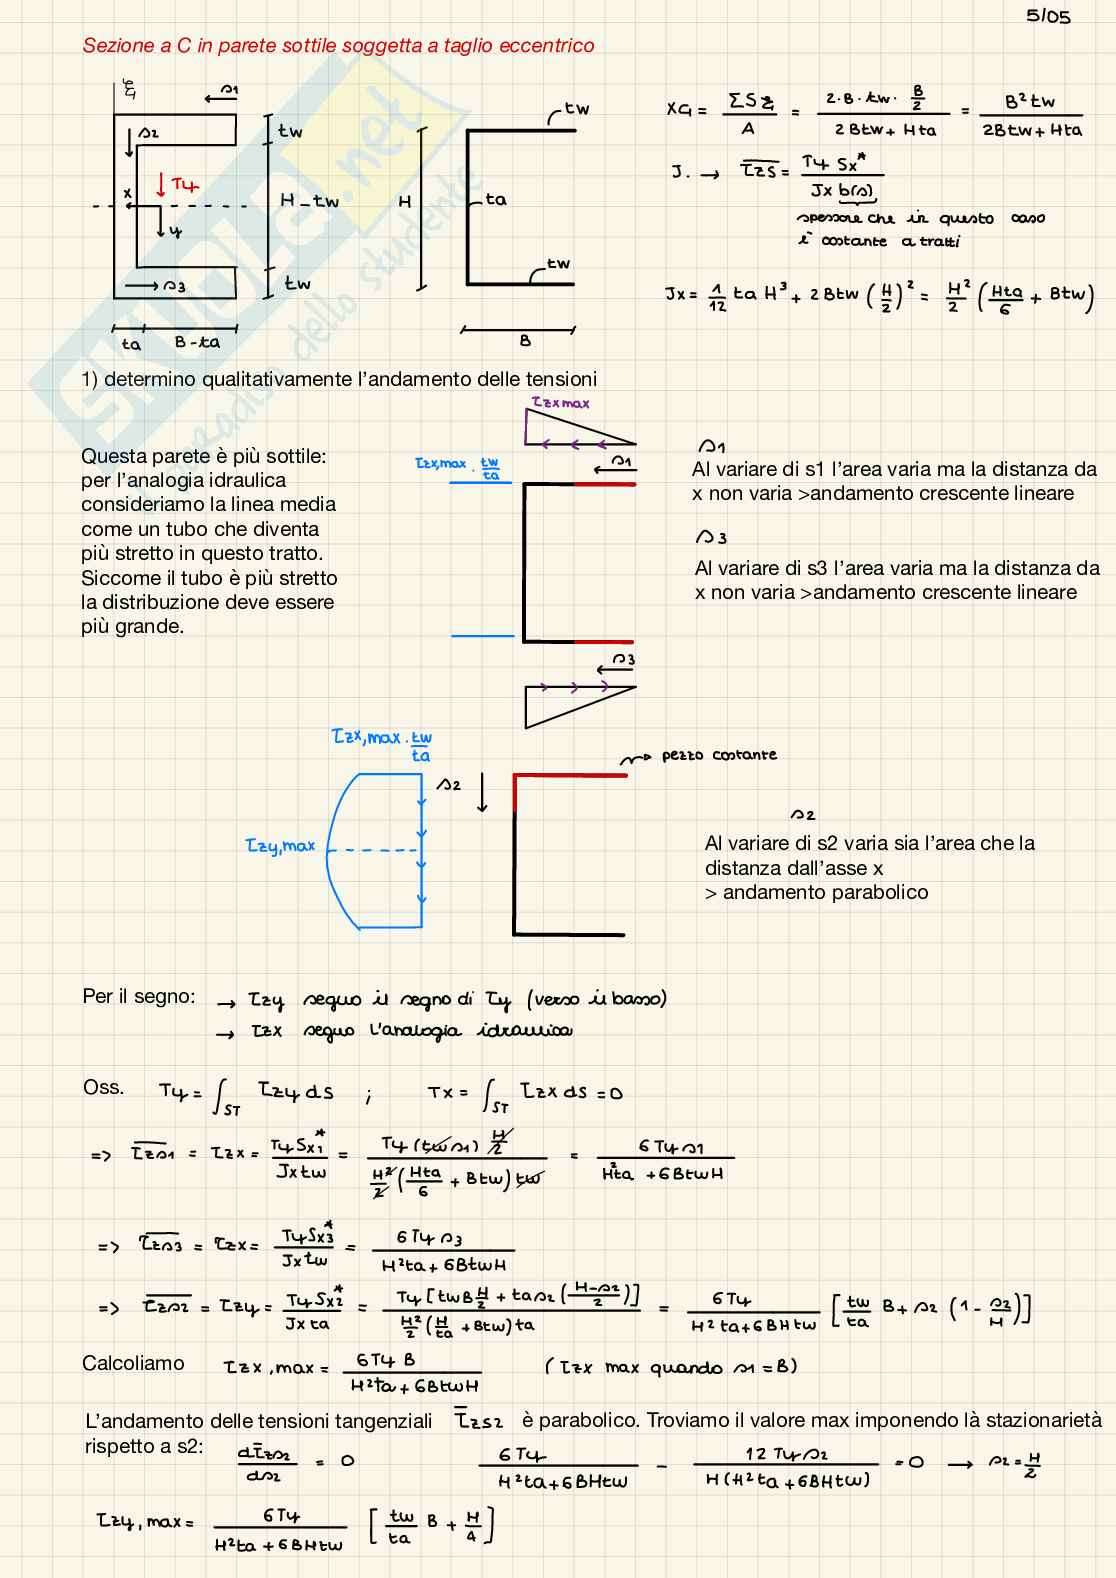 5/05
Sezione a C in parete sottile soggetta a taglio eccentrico
ξ
s1
s2
tw
tw
Ty
XG = ΣSξ / A = 2·B·tw·B/2 / 2Btw + Hta = B²tw / 2Btw + Hta
x
H - tw
H
ta
J. → τzs = Ty Sx* / Jx b(s)
y
spessore che in questo caso
è costante a tratti
s3
tw
tw
Jx = 1/12 ta H³ + 2Btw (H/2)² = H²/2 (Hta/6 + Btw)
ta
B - ta
B
SKUOLA.net
paradiso dello studente
1) determino qualitativamente l'andamento delle tensioni
τzx max
Questa parete è più sottile:
per l'analogia idraulica
consideriamo la linea media
come un tubo che diventa
più stretto in questo tratto.
Siccome il tubo è più stretto
la distribuzione deve essere
più grande.
τzx,max · tw/ta
s1
s1
Al variare di s1 l'area varia ma la distanza da
x non varia >andamento crescente lineare
s3
Al variare di s3 l'area varia ma la distanza da
x non varia >andamento crescente lineare
s3
τzx,max · tw/ta
s2
pezzo costante
τzy,max
s2
Al variare di s2 varia sia l'area che la
distanza dall'asse x
> andamento parabolico
Per il segno: → τzy seguo il segno di τy (verso il basso)
→ τzx seguo l'analogia idraulica
Oss. Ty = ∫ST τzy ds ; Tx = ∫ST τzx ds = 0
=> τzs1 = τzx = Ty Sx1* / Jx tw = Ty (tw s1) H/2 / H²/2 (Hta/6 + Btw) tw = 6 Ty s1 / H²ta + 6BtwH
=> τzs3 = τzx = Ty Sx3* / Jx tw = 6 Ty s3 / H²ta + 6BtwH
=> τzs2 = τzy = Ty Sx2* / Jx ta = Ty [tw B H/2 + ta s2 (H-s2 / 2)] / H²/2 (H/ta + Btw) ta = 6 Ty / H²ta + 6BHtw [tw/ta B + s2 (1 - s2/H)]
Calcoliamo τzx,max = 6 Ty B / H²ta + 6BtwH (τzx max quando s1 = B)
L'andamento delle tensioni tangenziali τzs2 è parabolico. Troviamo il valore max imponendo là stazionarietà
rispetto a s2: dτzs2 / ds2 = 0 6 Ty / H²ta + 6BHtw - 12 Ty s2 / H (H²ta + 6BHtw) = 0 → s2 = H/2
τzy,max = 6 Ty / H²ta + 6BHtw [tw/ta B + H/4]